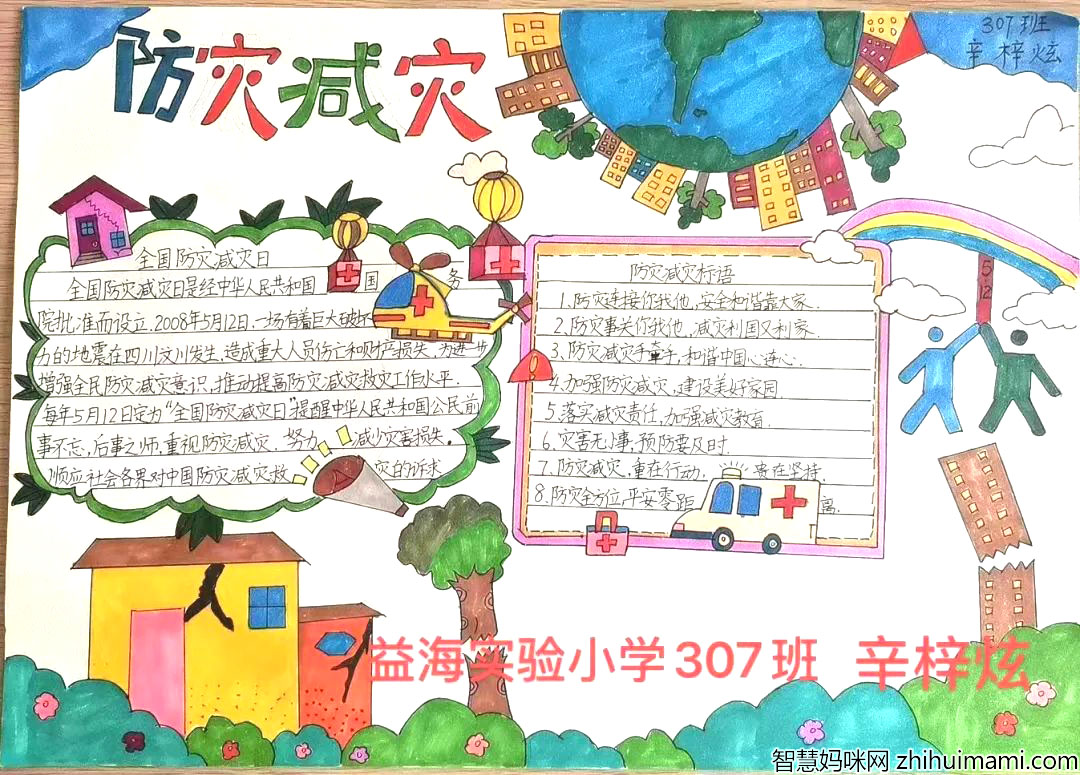 防灾减灾
307班
辛梓炫
全国防灾减灾日
全国防灾减灾日是经中华人民共和国 国 务
院批准而设立.2008年5月12日,一场有着巨大破坏
力的地震在四川汶川发生,造成重大人员伤亡和财产损失.为进一步
增强全民防灾减灾意识.推动提高防灾减灾救灾工作水平.
每年5月12日定为“全国防灾减灾日”提醒中华人民共和国公民前
事不忘,后事之师,重视防灾减灾.努力 减少灾害损失。
顺应社会各界对中国防灾减灾救 灾的诉求
防灾减灾标语
1.防灾连接你我他,安全和谐靠大家.
2.防灾事关你我他,减灾利国又利家.
3.防灾减灾手牵手,和谐中国心连心.
4.加强防灾减灾,建设美好家园.
5.落实减灾责任,加强减灾教育.
6.灾害无小事,预防要及时.
7.防灾减灾,重在行动, 贵在坚持.
8.防灾全方位,平安零距 离.
5.12
益海实验小学307班 辛梓炫
智慧妈咪网 zhihuimami.com